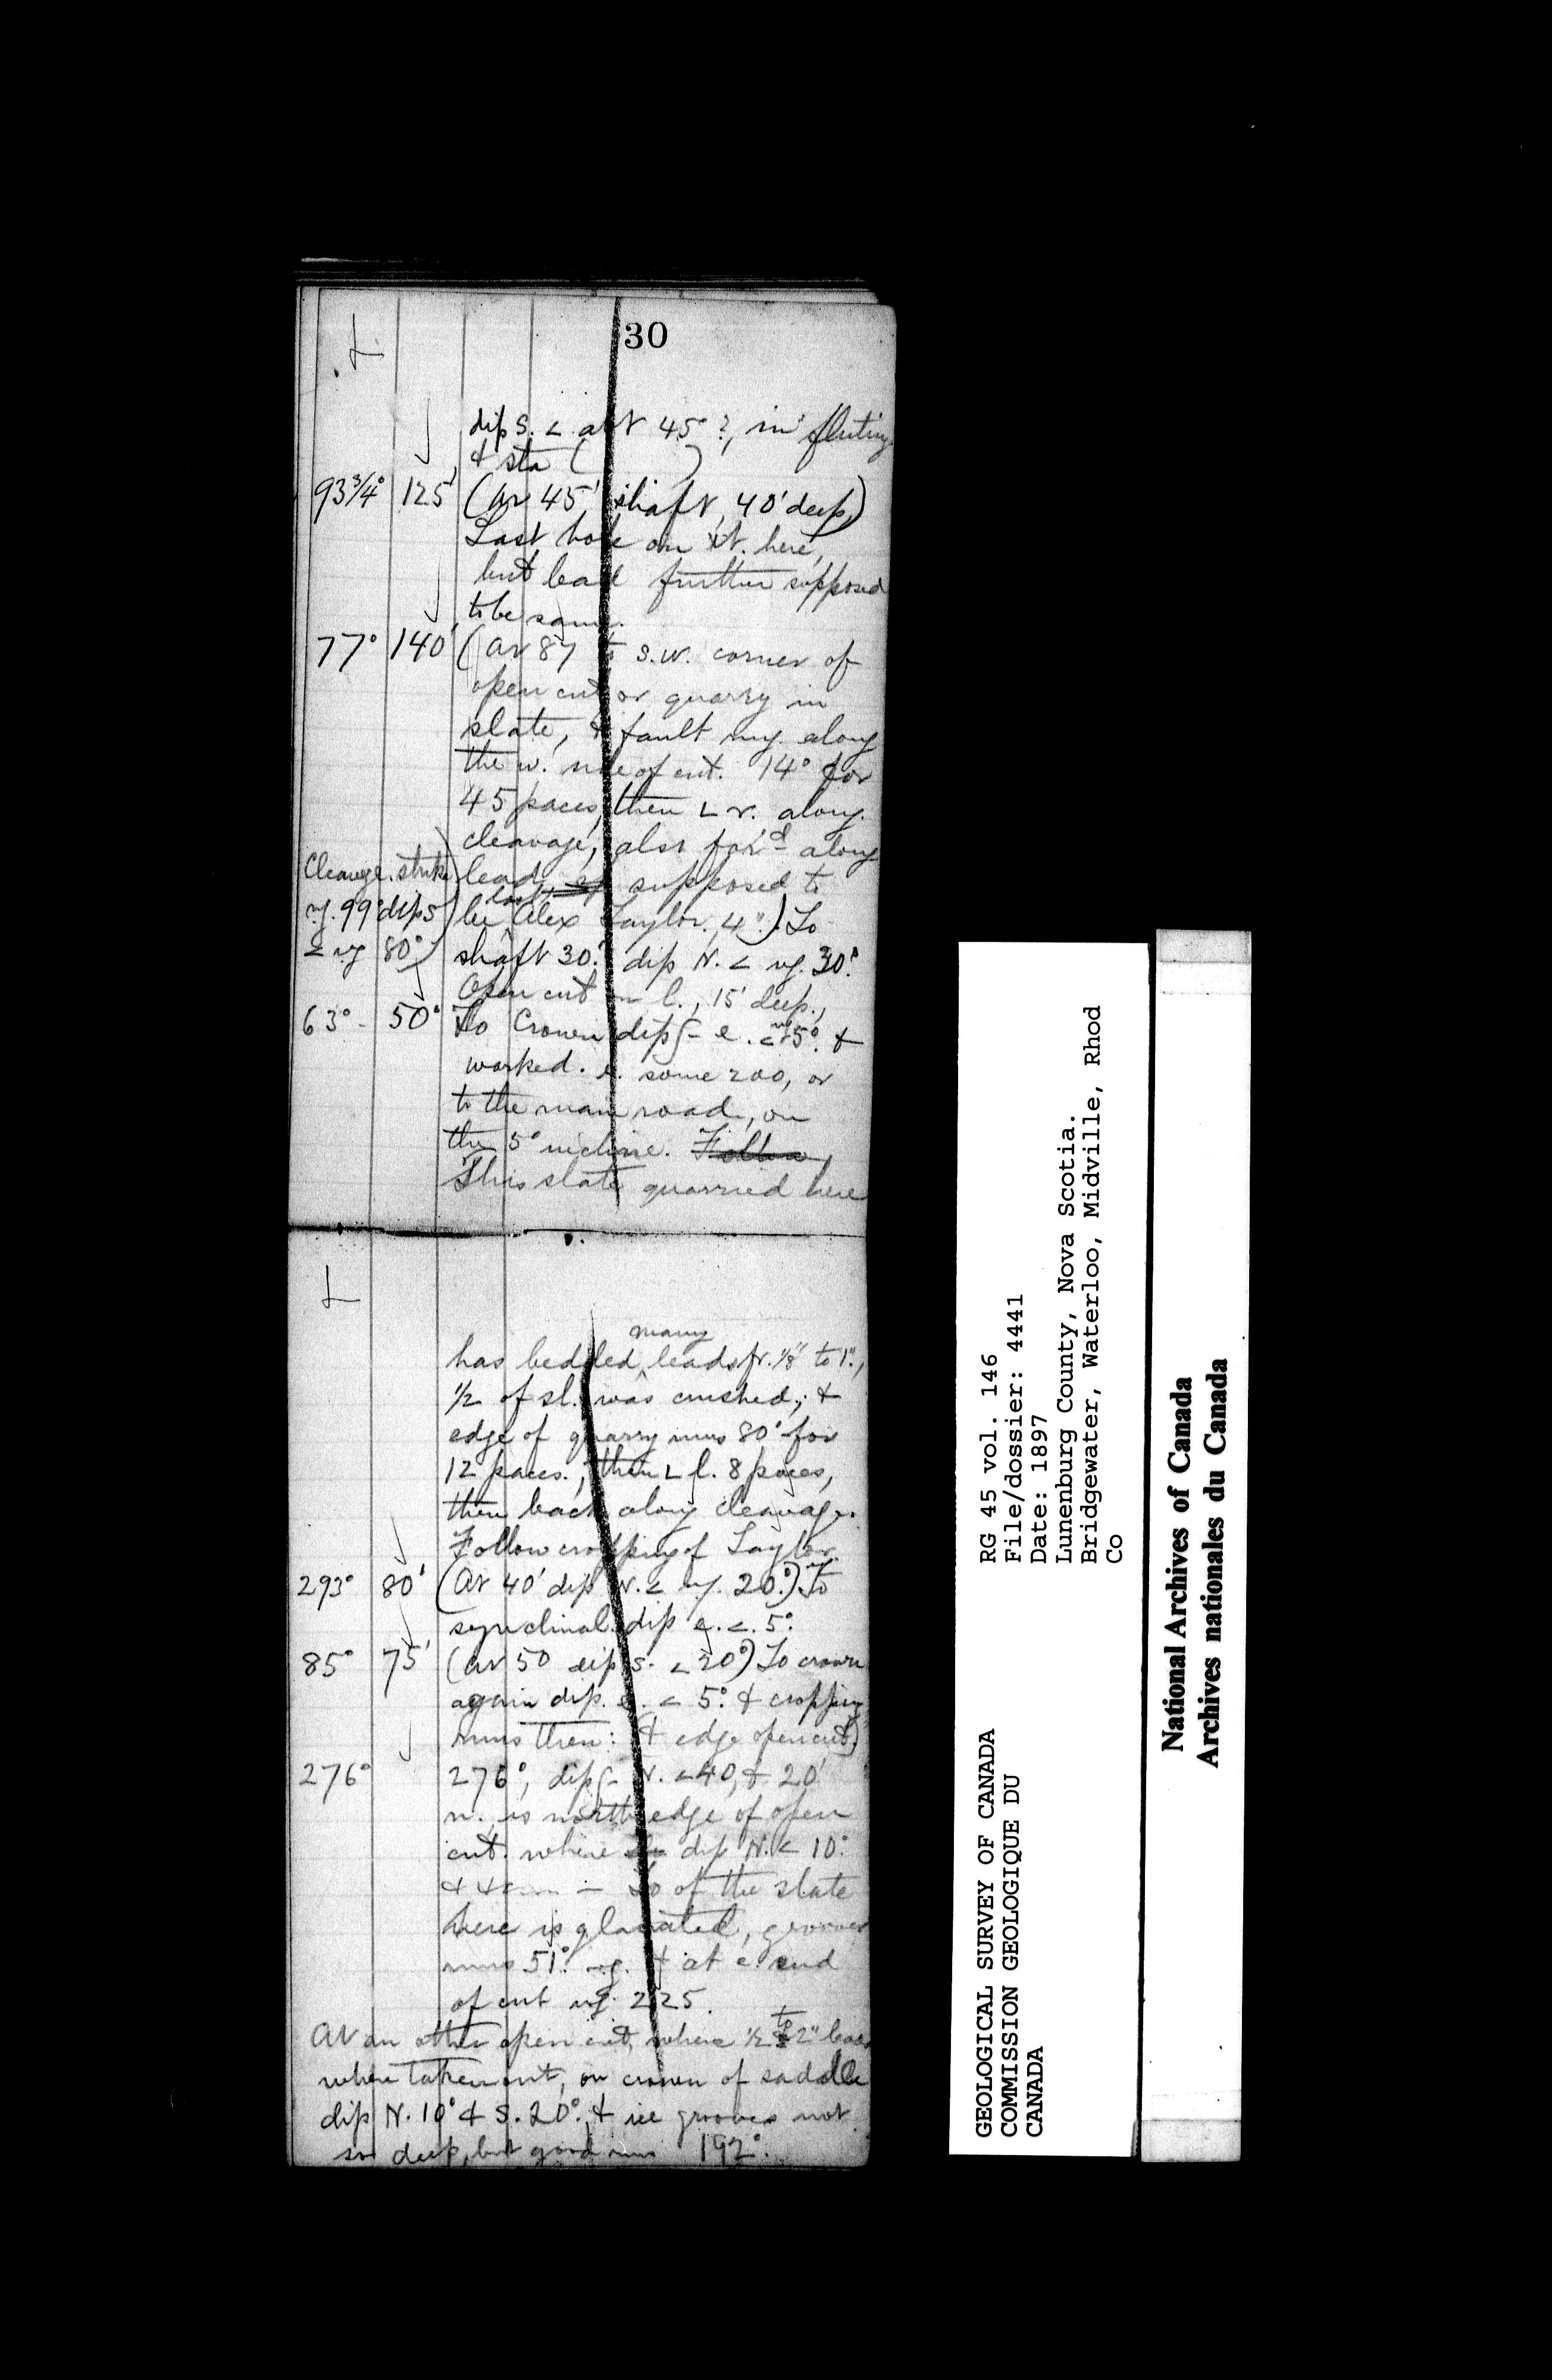 30
L
dip S. < abt 45°?, in fluting
& sta ( )
93 3/4° 125' (at 45' shaft, 40' deep.)
Last hole on it. here,
but lead further supposed
to be same.
77° 140' (at 87 to S.W. corner of
open cut or quarry in
slate, & fault rng. along
the w. side of cut. 14° for
45 paces, then L r. along
cleavage, also fak'd along
Cleavage strike lead supposed to
rg. 99° dip S be last Alex Taylor, 4".) To
< rg 80° shaft 30'. dip N. < rg. 30°.
Open cut on l., 15' deep.,
63° - 50° To Crown dipg e. < rg 5°. &
worked. e. some 200, or
to the main road, on
the 5° incline. Follow
This slate quarried here
L
has bedded many leads fr. 1/8" to 1".,
1/2 of sl. was crushed; &
edge of quarry runs 80° for
12 paces.; then L l. 8 paces,
then back along cleavage.
Follow cropping of Taylor.
293° 80' (at 40' dip N. < rg. 20°.) rg. To
synclinal. dip e. <. 5°.
85° 75' (at 50 dip S. < 20°) To crown
again dip. e. < 5°. & cropping
runs then: (& edge open cut)
276° 276°, dipg N. < 40, & 20'
n. is north edge of open
cut. where dip N. < 10°.
of the slate
here is glaciated, grooves
runs 51°. rg. & at e. end
of cut rg. 225.
At an other open cut, where 1/2 to 2" lead
where taken out, on crown of saddle
dip N. 10° & S. 20°. & ice grooves not
so deep, but good run 192°.
RG 45 vol. 146
File/dossier: 4441
Date: 1897
Lunenburg County, Nova Scotia.
Bridgewater, Waterloo, Midville, Rhod
Co
GEOLOGICAL SURVEY OF CANADA
COMMISSION GEOLOGIQUE DU
CANADA
National Archives of Canada
Archives nationales du Canada